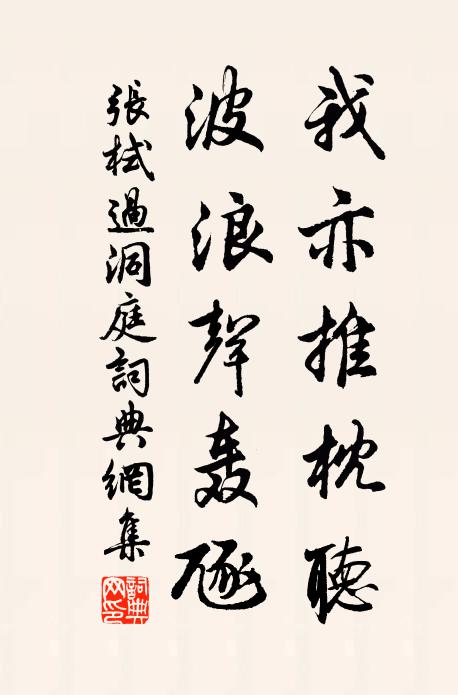 我亦推枕聽
波浪聲轰豗
張栻過洞庭詞典網集
詞典网印